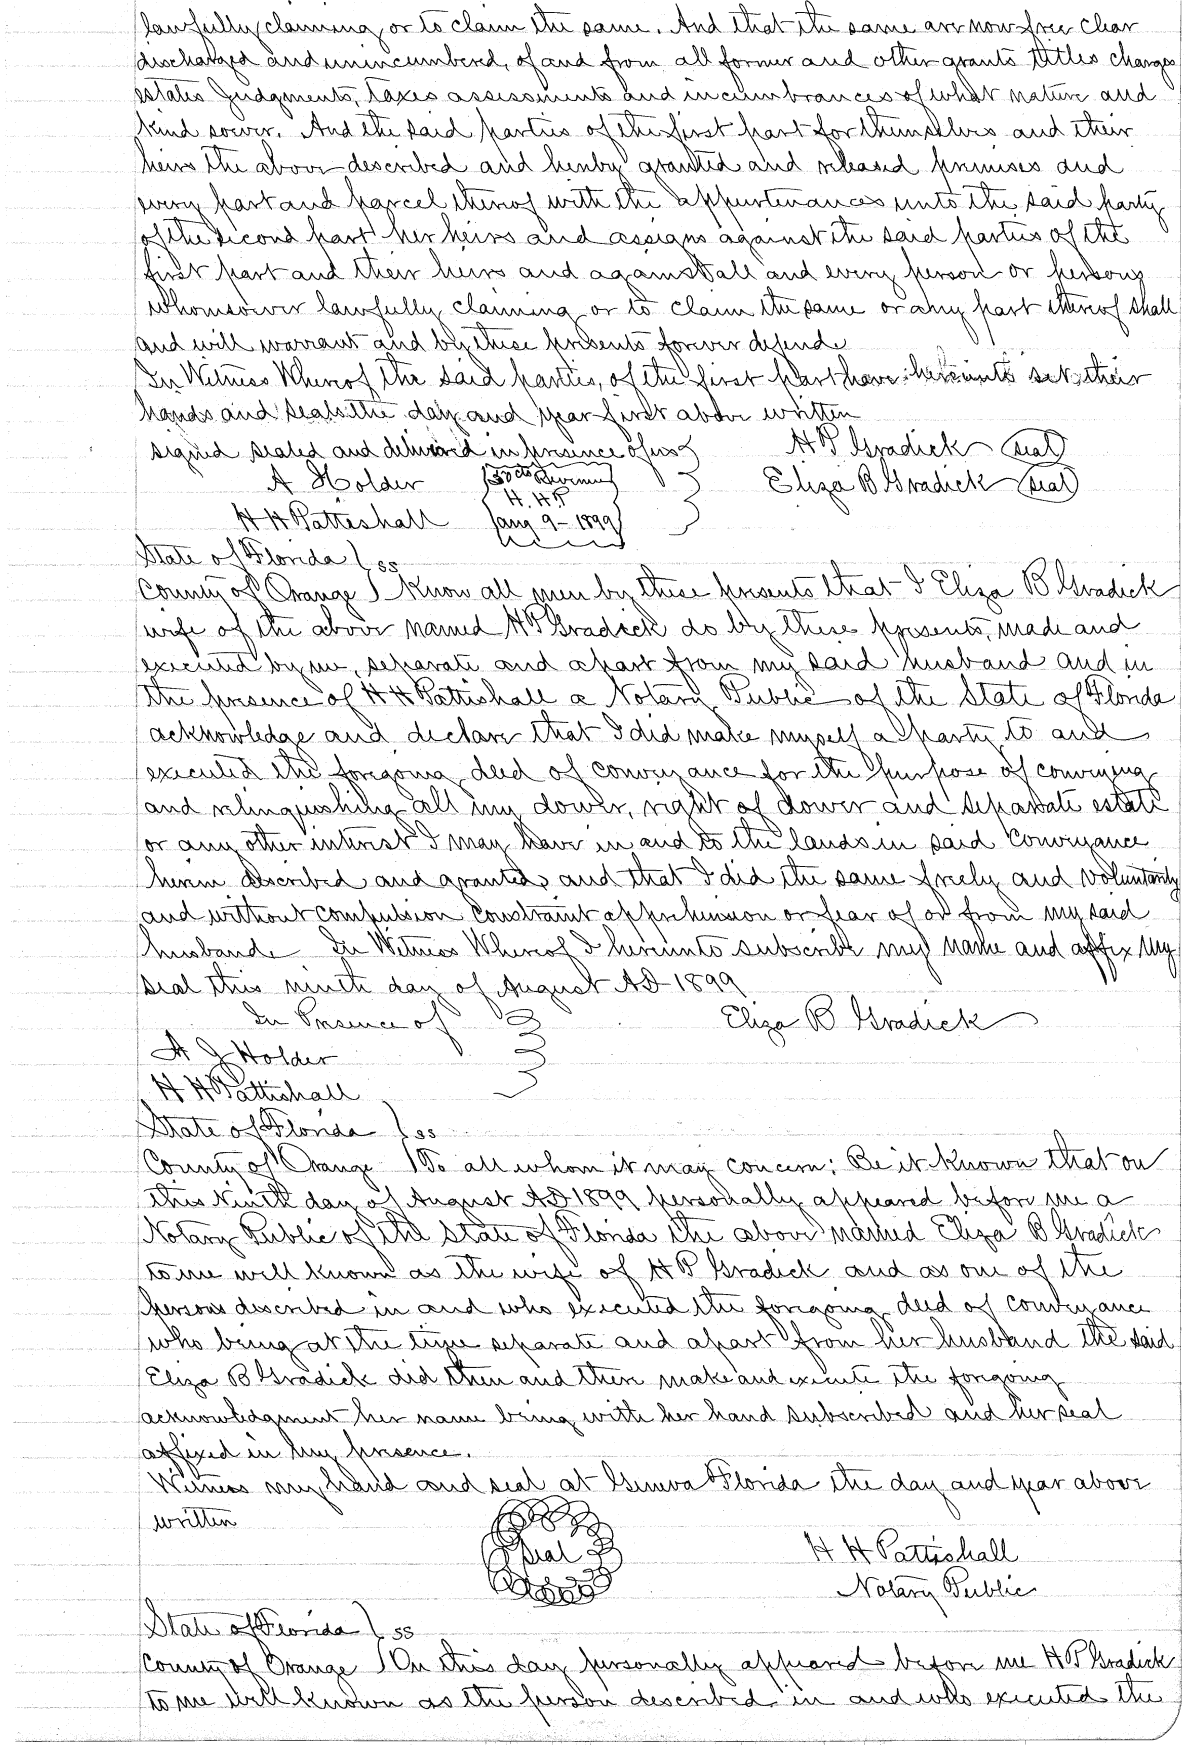 lawfully claiming or to claim the same. And that the same are now free clear
discharged and unincumbered, of and from all former and other grants titles charges
estates Judgments, taxes assessments and incumbrances of what nature and
kind soever. And the said parties of the first part for themselves and their
heirs the above described and hereby granted and released premises and
every part and parcel thereof with the appurtenances unto the said party
of the second part her heirs and assigns against the said parties of the
first part and their heirs and against all and every person or persons
whomsoever lawfully claiming or to claim the same or any part thereof shall
and will warrant and by these presents forever defend
In Witness Whereof the said parties, of the first part have hereunto set their
hands and seals the day and year first above written
signed sealed and delivered in presence of us H P Gradick seal
A Holder 50 cts Revenue Eliza B Gradick seal
H. H P
H H Pattishall Aug 9 - 1899
State of Florida } ss
County of Orange } Know all men by these presents that I Eliza B Gradick
wife of the above named H P Gradick do by these presents, made and
executed by me, separate and apart from my said husband and in
the presence of H H Pattishall a Notary Public of the State of Florida
acknowledge and declare that I did make myself a party to and
executed the foregoing deed of conveyance for the purpose of conveying
and relinquishing all my dower, right of dower and separate estate
or any other interest I may have in and to the lands in said Conveyance
herein described and granted, and that I did the same freely and voluntarily
and without compulsion constraint apprehension or fear of or from my said
husband. In Witness Whereof I hereunto subscribe my name and affix my
seal this ninth day of August AD 1899
In Presence of Eliza B Gradick
A J Holder
H H Pattishall
State of Florida } ss
County of Orange } To all whom it may concern; Be it known that on
this Ninth day of August AD 1899 personally appeared before me a
Notary Public of the State of Florida the above named Eliza B Gradick
to me well known as the wife of H P Gradick and as one of the
persons described in and who executed the foregoing deed of conveyance
who being at the time separate and apart from her husband the said
Eliza B Gradick did then and there make and execute the foregoing
acknowledgment her name being with her hand subscribed and her seal
affixed in my presence.
Witness my hand and seal at Geneva Florida the day and year above
written
seal H H Pattishall
Notary Public
State of Florida } ss
County of Orange } On this day personally appeared before me H P Gradick
to me well known as the person described in and who executed the